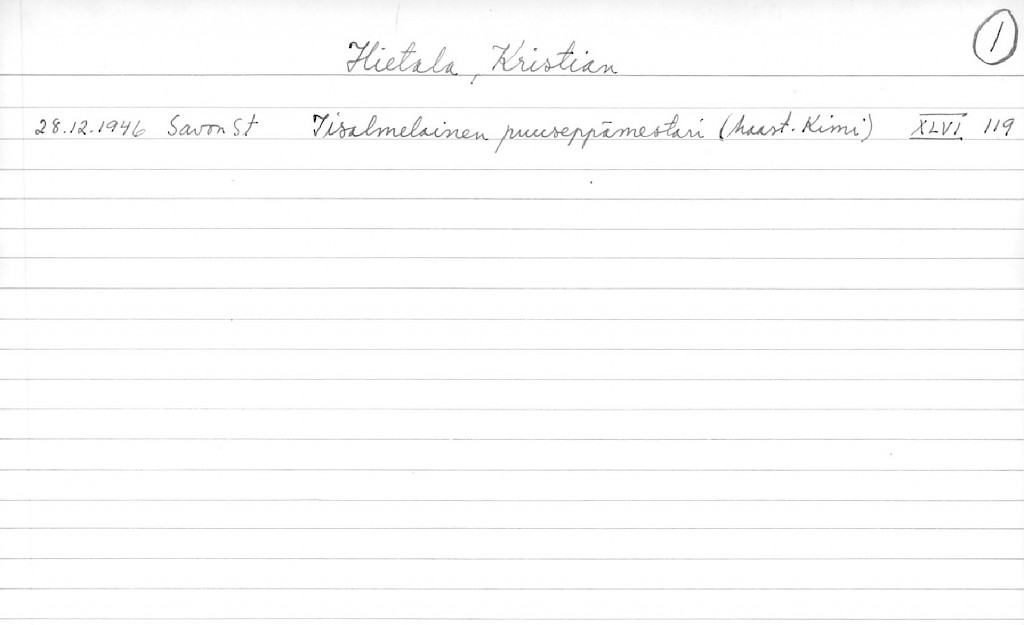 1
Hietala, Kristian
28.12.1946 Savon St Iisalmelainen puuseppämestari (haast. Kimi) XLVI 119